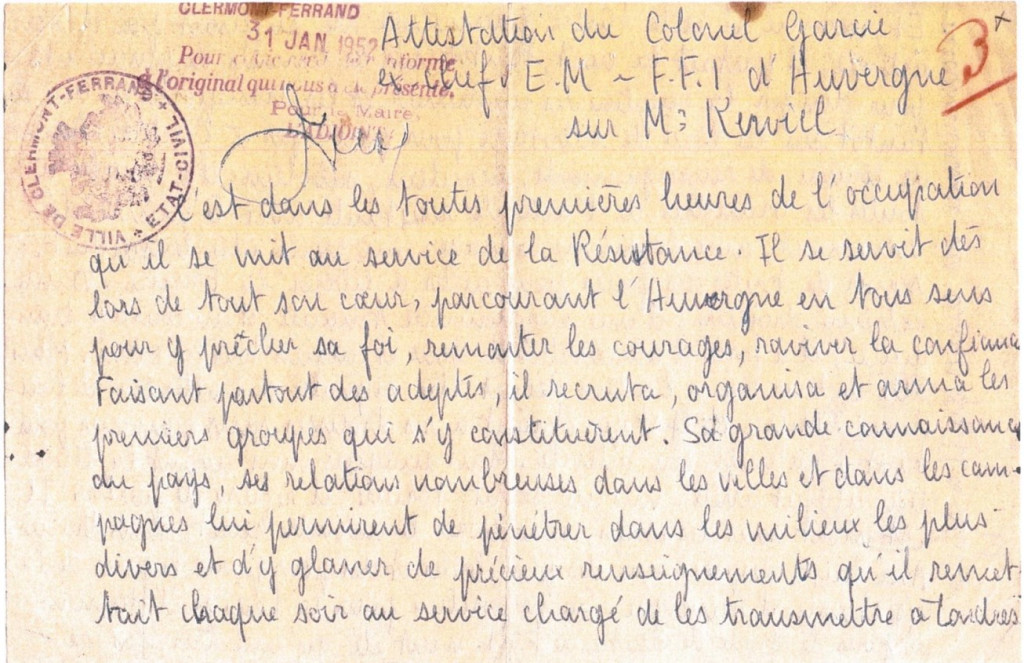 CLERMONT-FERRAND
31 JAN 1952
Pour copie certifiée conforme
à l'original qui nous a été présenté,
Pour le Maire,
VILLE DE CLERMONT-FERRAND * ETAT-CIVIL *
Attestation du Colonel Garcie
ex-chef E.M - F.F.I d'Auvergne
sur Mr Kerviel
3
C'est dans les toutes premières heures de l'occupation
qu'il se mit au service de la Résistance. Il se servit dès
lors de tout son cœur, parcourant l'Auvergne en tous sens
pour y prêcher sa foi, remonter les courages, raviver la confiance
Faisant partout des adeptes, il recruta, organisa et arma les
premiers groupes qui s'y constituèrent. Sa grande connaissance
du pays, ses relations nombreuses dans les villes et dans les cam-
pagnes lui permirent de pénétrer dans les milieux les plus
divers et d'y glaner de précieux renseignements qu'il remet
tait chaque soir au service chargé de les transmettre à Londres